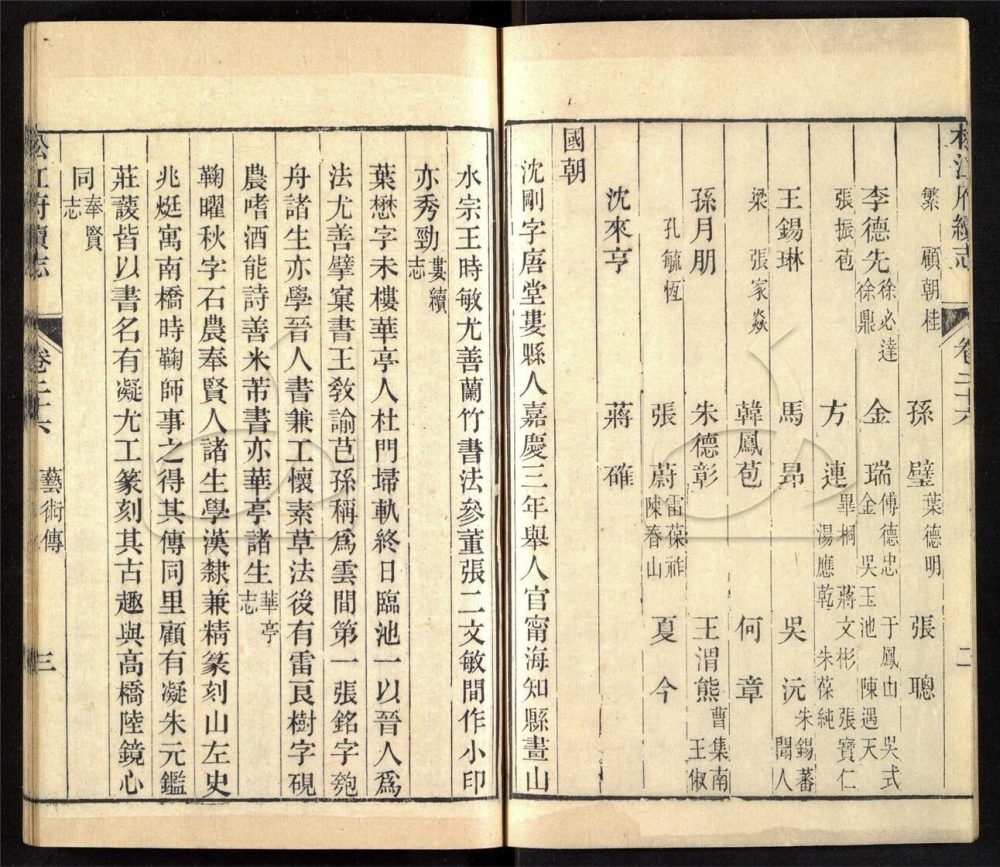 松江府續志 卷二十六 二
繁 顧朝桂 孫璧 葉德明 張聰
李德先 徐必達 徐鼎 金瑞 傅德忠 于鳳山 吳式 金 吳玉池 陳遇天
張振苞 方連 畢桐 蔣文彬 張寶仁 湯應乾 朱葆純
王錫琳 馬昂 吳沅 朱錫蕃 聞人
梁 張家焱 韓鳳苞 何章
孫月朋 朱德彰 王渭熊 曹集南 王俶
孔毓恆 張蔚 雷葆祚 陳春山 夏今
沈來亨 蔣確
國朝
沈剛字唐堂婁縣人嘉慶三年舉人官甯海知縣畫山
水宗王時敏尤善蘭竹書法參董張二文敏間作小印
亦秀勁婁續志
葉懋字未樓華亭人杜門埽軌終日臨池一以晉人爲
法尤善擘窠書王敎諭芑孫稱爲雲間第一張銘字匏
舟諸生亦學晉人書兼工懷素草法後有雷良樹字硯
農嗜酒能詩善米芾書亦華亭諸生華亭志
鞠曜秋字石農奉賢人諸生學漢隸兼精篆刻山左史
兆烶寓南橋時鞠師事之得其傳同里顧有凝朱元鑑
莊䕶皆以書名有凝尤工篆刻其古趣與高橋陸鏡心
同奉賢志
松江府續志 卷二十六 藝術傳 三